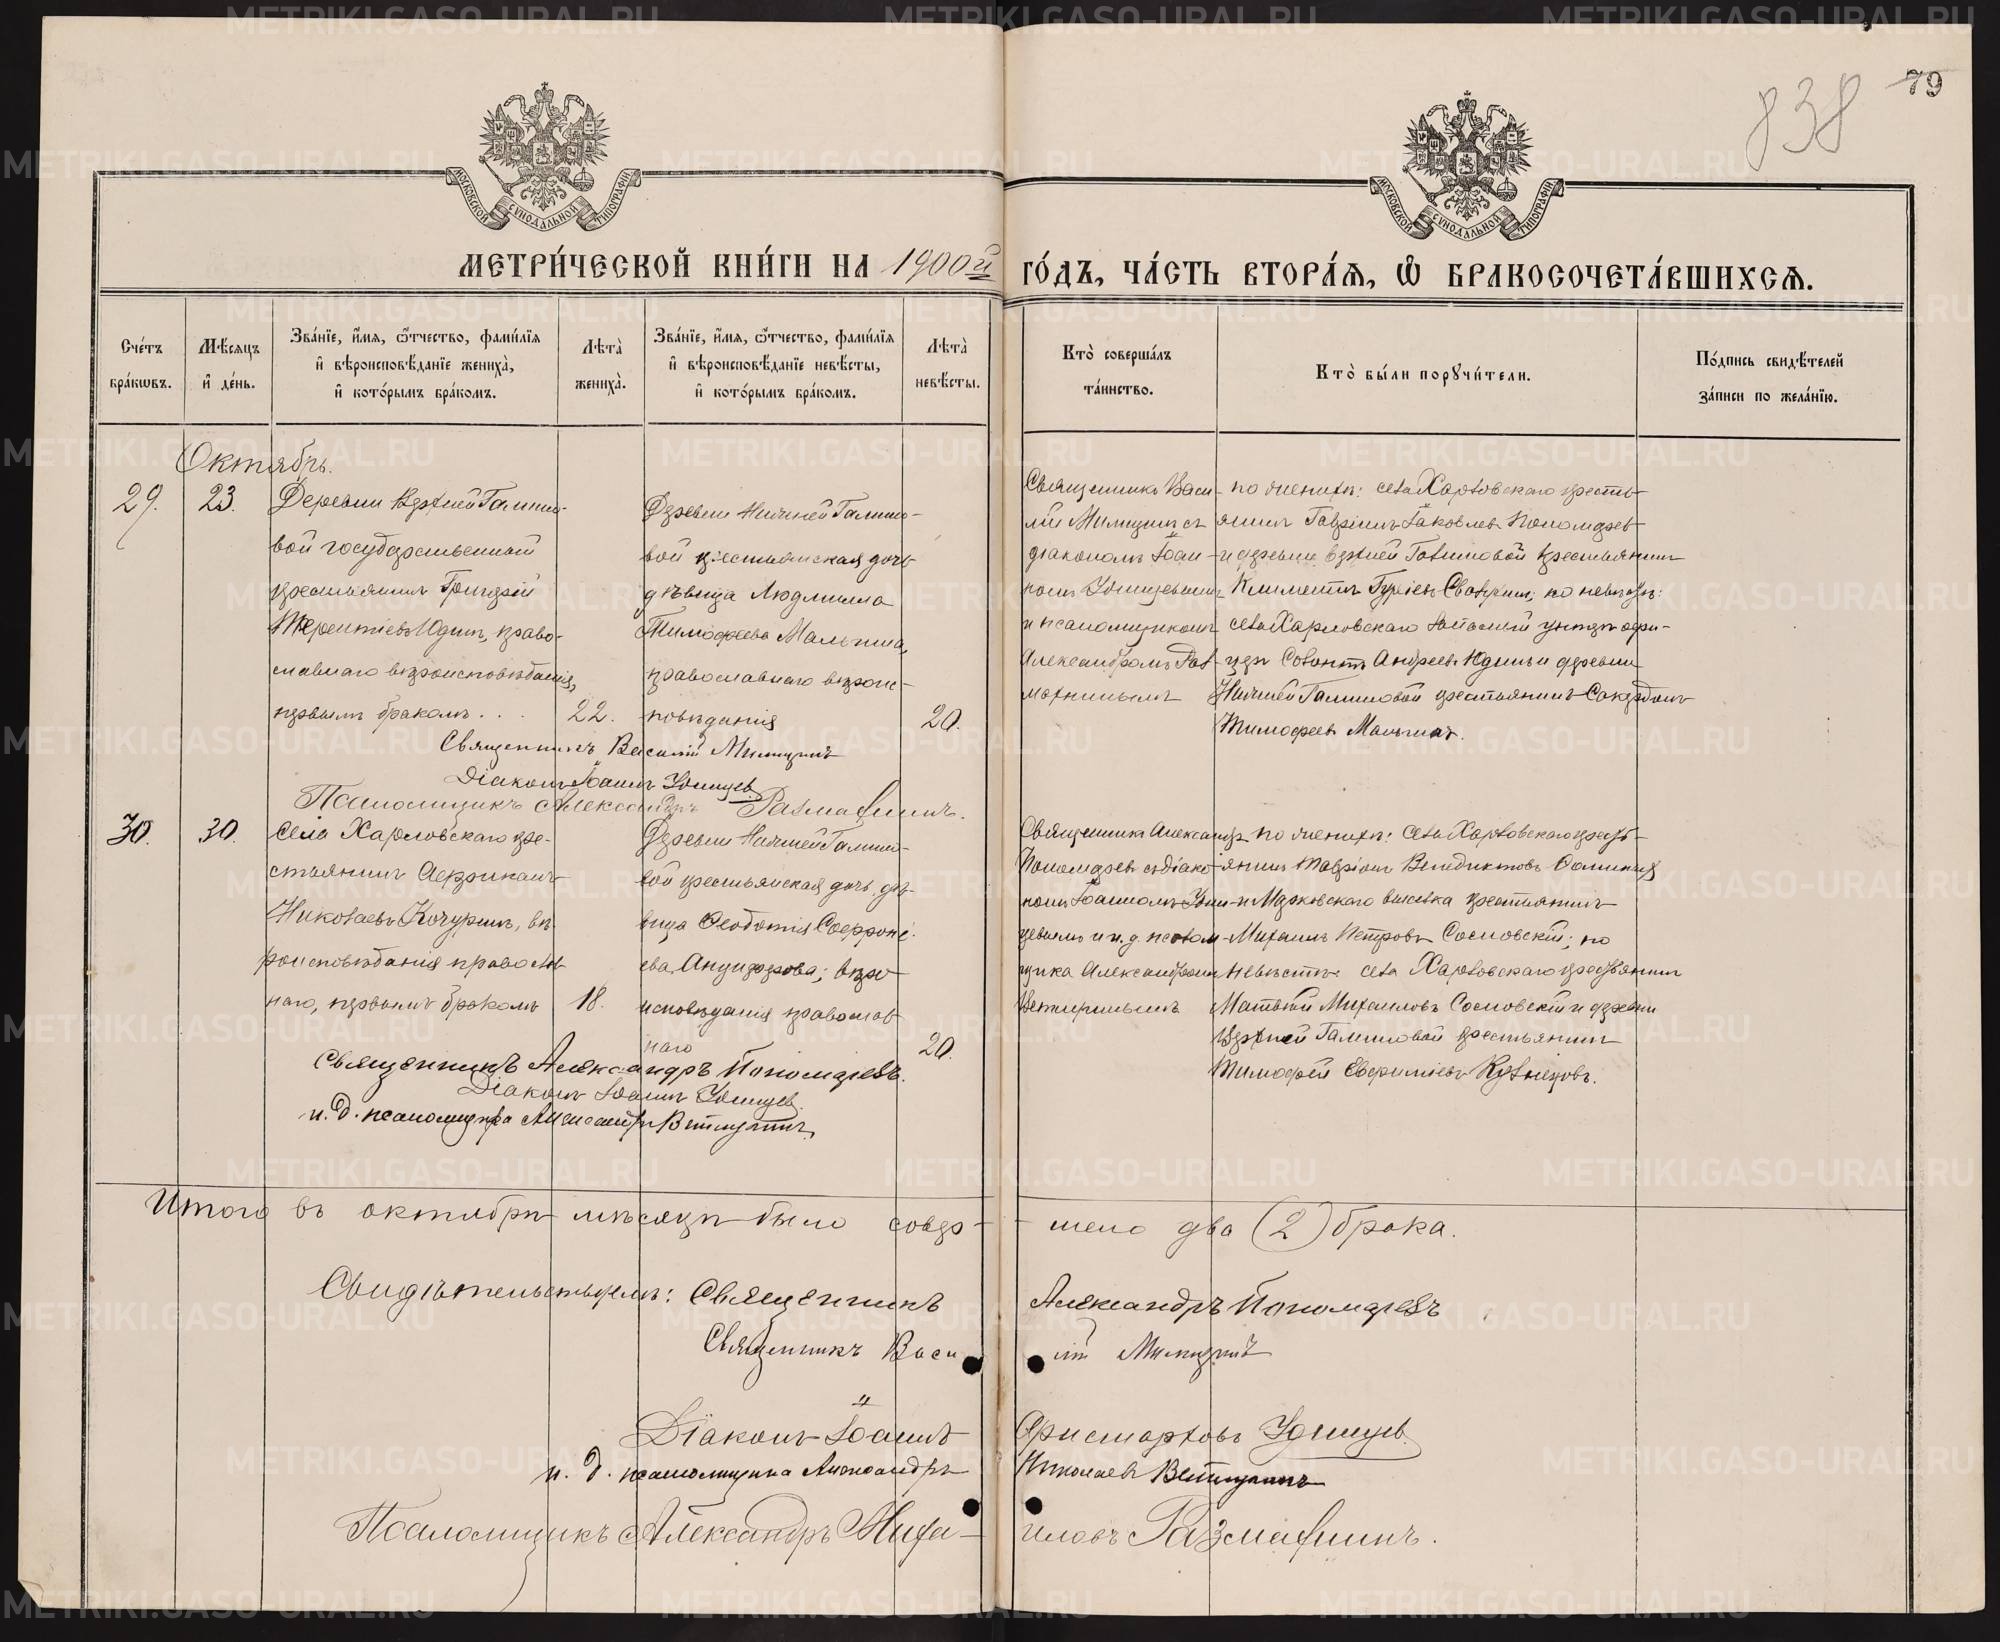 838
79
МОСКОВСКОЙ СУНОДАЛЬНОЙ ТИПОГРАФІИ
МОСКОВСКОЙ СУНОДАЛЬНОЙ ТИПОГРАФІИ
МЕТРИ́ЧЕСКОЙ КНИ́ГИ НА 1900й ГО́ДЪ, ЧА́СТЬ ВТОРА́Я, Ѿ БРАКОСОЧЕТА́ВШИХСЯ.
Сче́тъ бра́кωвъ.
Мѣ́сяцъ и҆ де́нь.
Зва́нїе, и҆́мя, ѻ҆́тчество, фами́лїя и҆ вѣроисповѣ́данїе жениха̀, и҆ кото́рымъ бра́комъ.
Лѣта̀ жениха̀.
Зва́нїе, и҆́мя, ѻ҆́тчество, фами́лїя и҆ вѣроисповѣ́данїе невѣ́сты, и҆ кото́рымъ бра́комъ.
Лѣта̀ невѣ́сты.
Кто̀ соверша́лъ та́инство.
Кто̀ бы́ли порꙋчи́тели.
По́дпись свидѣ́телей за́писи по жела́нїю.
Октябрь.
29.
23.
Деревни Верхней Галишо-
вой государственный
крестьянинъ Григорій
Терентіевъ Юдинъ, право-
славнаго вѣроисповѣданія,
первымъ бракомъ . . .
22.
Деревни Нижней Галишо-
вой крестьянская дочь
дѣвица Людмилла
Тимофеева Мальгина,
православнаго вѣроис-
повѣданія
20.
Священникъ Васи-
лій Милицинъ съ
діакономъ Іоан-
номъ Удинцевымъ
и псаломщикомъ
Александромъ Раз-
махнинымъ
по женихѣ: села Харловскаго кресть-
янинъ Гавріилъ Іаковлевъ Пономаревъ
и деревни Верхней Галишовой крестьянинъ
Климентъ по невѣстѣ:
села Харловскаго запасный унтеръ офи-
церъ Андреевъ Юдинъ и деревни
Нижней Галишовой крестьянинъ
Тимофеевъ Мальгинъ.
Священникъ Василій Милицинъ
Діаконъ Іоаннъ Удинцевъ
Псаломщикъ Александръ Размахнинъ.
30.
30.
Села Харловскаго кре-
стьянинъ Африканъ
Николаевъ Кочуринъ, вѣ-
роисповѣданія православ-
наго, первымъ бракомъ
18.
Деревни Нижней Галишо-
вой крестьянская дочь дѣ-
вица Ѳеодотія Софроні-
ева Анциферова; вѣро-
исповѣданія православ-
наго
20.
Священникъ Александръ
Пономаревъ съ діако-
номъ Іоанномъ Удин-
цевымъ и и. д. псалом-
щика Александромъ
по женихѣ: села Харловскаго кресть-
янинъ Венедиктовъ
и Марковскаго выселка крестьянинъ
Михаилъ Петровъ Сосновскій; по
невѣстѣ: села Харловскаго крестьянинъ
Матвѣй Михаиловъ Сосновскій и деревни
Верхней Галишовой крестьянинъ
Тимофей Евфиміевъ Кузнецовъ.
Священникъ Александръ Пономаревъ.
Діаконъ Іоаннъ Удинцевъ.
и. д. псаломщика Александръ Ветлугинъ.
Итого въ октябрѣ мѣсяцѣ было совер-шено два (2) брака.
Свидѣтельствуемъ: Священникъ Александръ Пономаревъ
Священникъ Василій Милицинъ
Діаконъ Іоаннъ Аристарховъ Удинцевъ.
и. д. псаломщика Александръ Николаевъ Ветлугинъ
Псаломщикъ Александръ Миха-иловъ Размахнинъ.